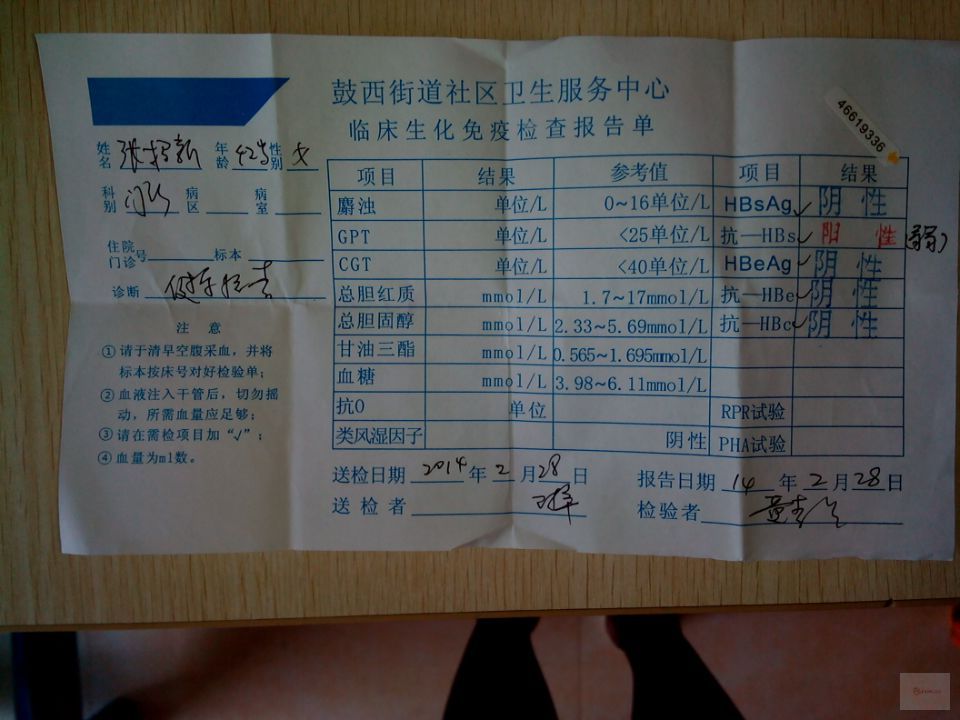 鼓西街道社区卫生服务中心
临床生化免疫检查报告单
46619336
姓名 年龄 性别 女
科别 病区 病室
住院门诊号 标本
诊断
注 意
①请于清早空腹采血，并将
标本按床号对好检验单；
②血液注入干管后，切勿摇
动，所需血量应足够；
③请在需检项目加“√”；
④血量为ml数。
项目 结果 参考值 项目 结果
麝浊 单位/L 0~16单位/L HBsAg √ 阴 性
GPT 单位/L <25单位/L 抗—HBs √ 阳 性
CGT 单位/L <40单位/L HBeAg √ 阴 性
总胆红质 mmol/L 1.7~17mmol/L 抗—HBe √ 阴 性
总胆固醇 mmol/L 2.33~5.69mmol/L 抗—HBc √ 阴 性
甘油三酯 mmol/L 0.565~1.695mmol/L
血糖 mmol/L 3.98~6.11mmol/L
抗O 单位 RPR试验
类风湿因子 阴性 PHA试验
送检日期 2014 年 2 月 28 日 报告日期 14 年 2 月 28 日
送检者 检验者